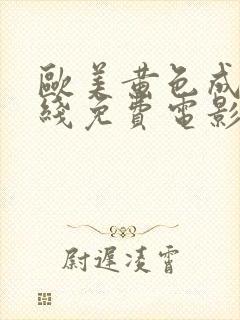 歐美黃色成
綫免費電影
尉遲凌霄